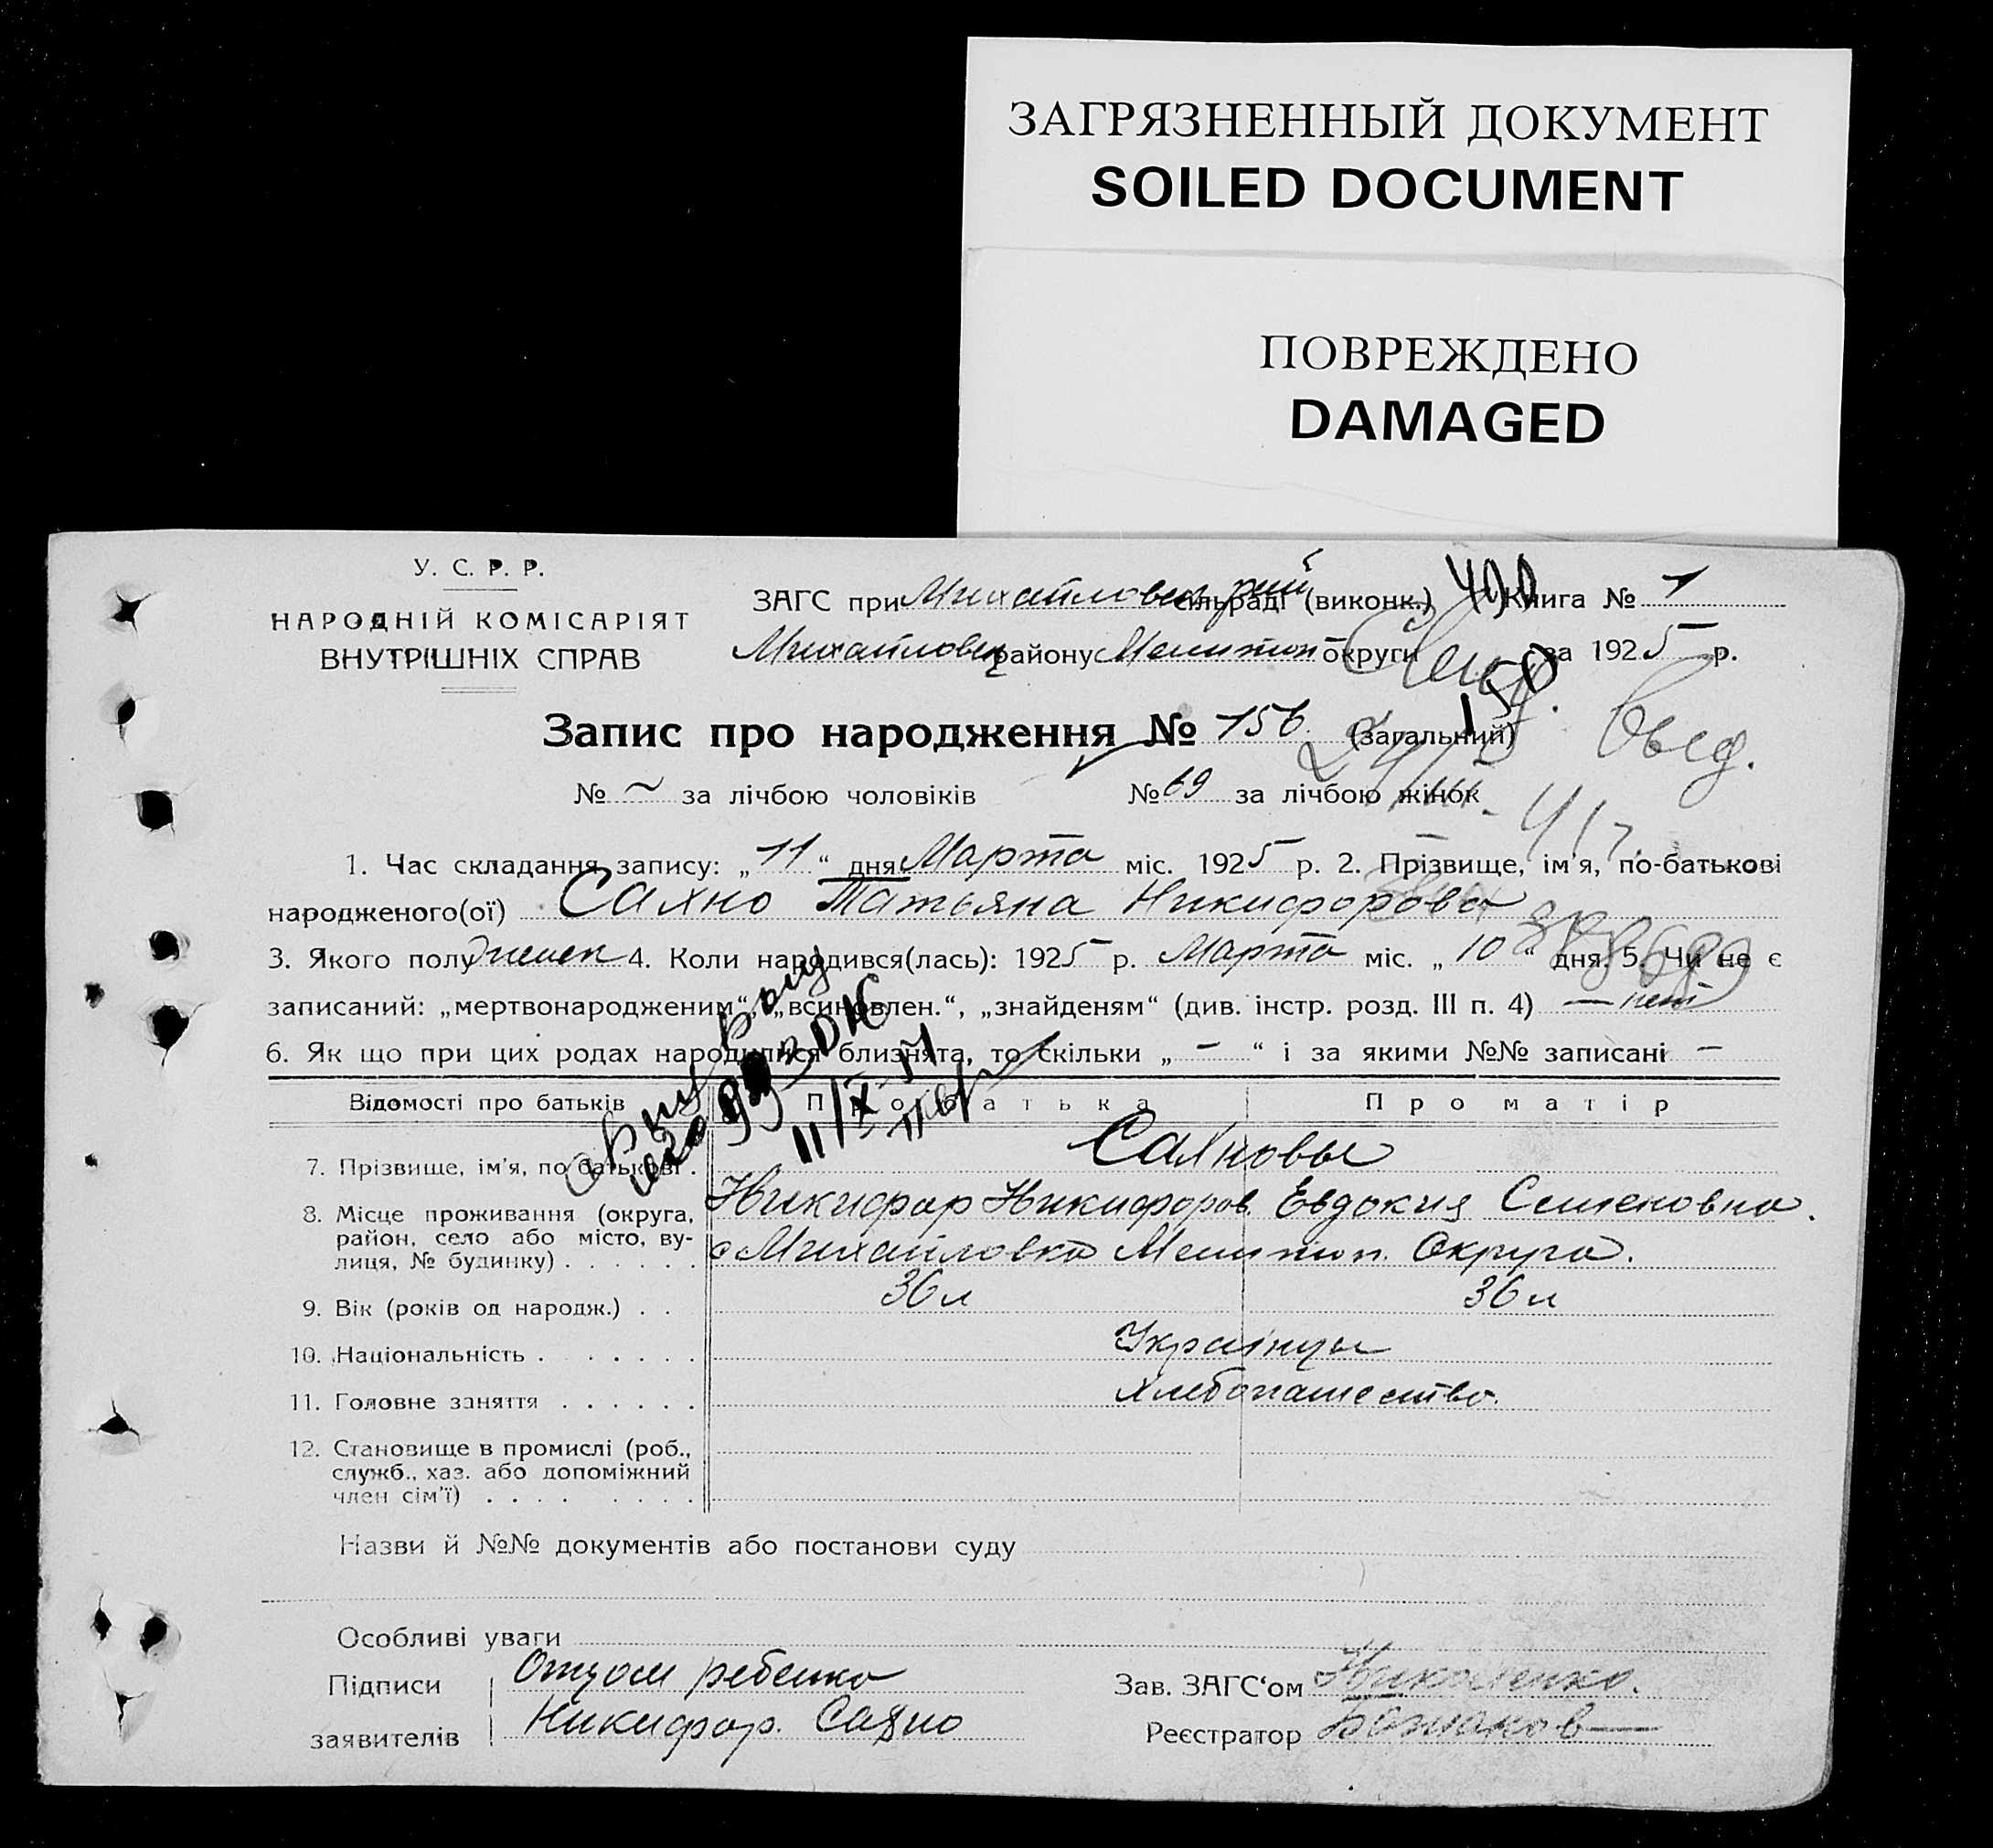 ЗАГРЯЗНЕННЫЙ ДОКУМЕНТ
SOILED DOCUMENT
ПОВРЕЖДЕНО
DAMAGED
У. С. Р. Р.
НАРОДНІЙ КОМІСАРІЯТ
ВНУТРІШНІХ СПРАВ
ЗАГС при сільраді (виконк.) Книга № 1
району Мелитоп округи за 1925 р.
Запис про народження № 156 (загальний)
№ ~ за лічбою чоловіків № 69 за лічбою жінок
1. Час складання запису: „11“ дня Марта міс. 1925 р. 2. Прізвище, ім'я, по-батькові
народженого(ої) Сахно Татьяна Никифорова
3. Якого полу женск 4. Коли народився(лась): 1925 р. Марта міс. „10“ дня. 5. Чи не є
записаний: „мертвонародженим“, „всиновлен.“, „знайденям“ (див. інстр. розд. III п. 4) — нет
6. Як що при цих родах народилися близнята, то скільки „ – “ і за якими №№ записані –
Відомості про батьків Про батька Про матір
7. Прізвище, ім'я, по батькові . Сахновы
8. Місце проживання (округа, Никифор Никифоров. Евдокия Семеновна.
район, село або місто, ву- с Михайловка Мелитоп. Округа.
лиця, № будинку) . . . . . .
9. Вік (років од народж.) . . 36 л 36 л
10. Національність . . . . . . Украінцы
11. Головне заняття . . . . . . Хлебопашество.
12. Становище в промислі (роб.,
служб., хаз. або допоміжний
член сім'ї) . . . . . . . .
Назви й №№ документів або постанови суду
Особливі уваги
Підписи Отцом ребенка Зав. ЗАГС‘ом Николенко.
заявителів Никифор. Сахно Реєстратор